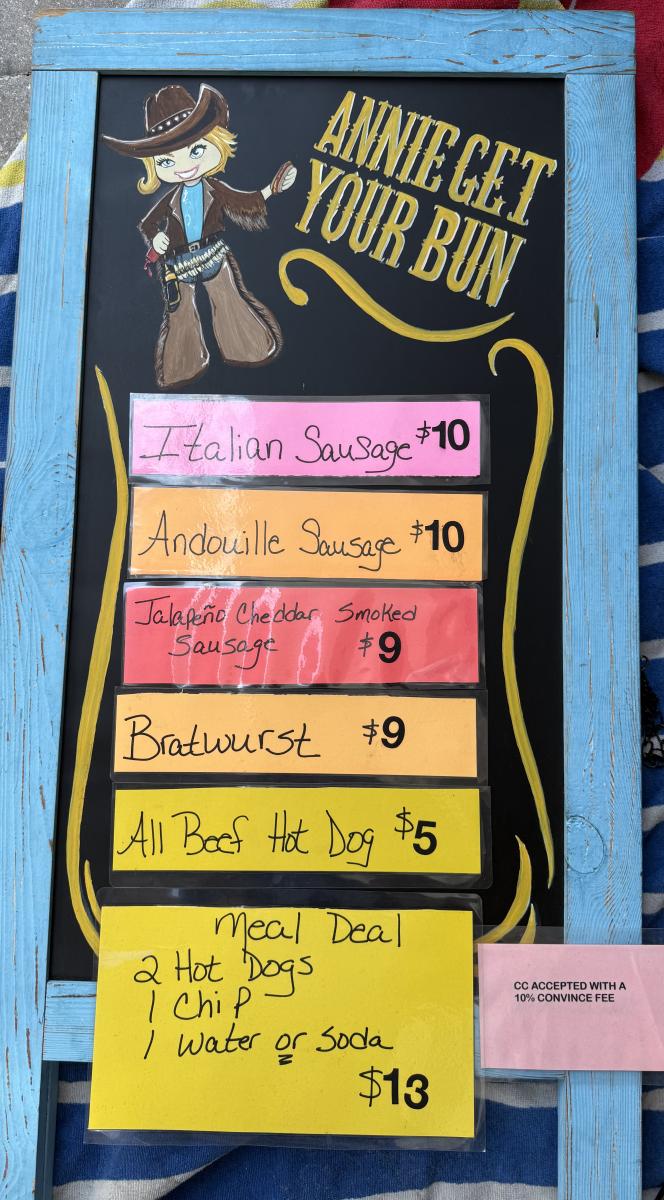 ANNIE GET
YOUR BUN
Italian Sausage $10
Andouille Sausage $10
Jalapeño Cheddar Smoked
Sausage $9
Bratwurst $9
All Beef Hot Dog $5
Meal Deal
2 Hot Dogs
1 Chip
1 water or Soda
$13
CC ACCEPTED WITH A
10% CONVINCE FEE